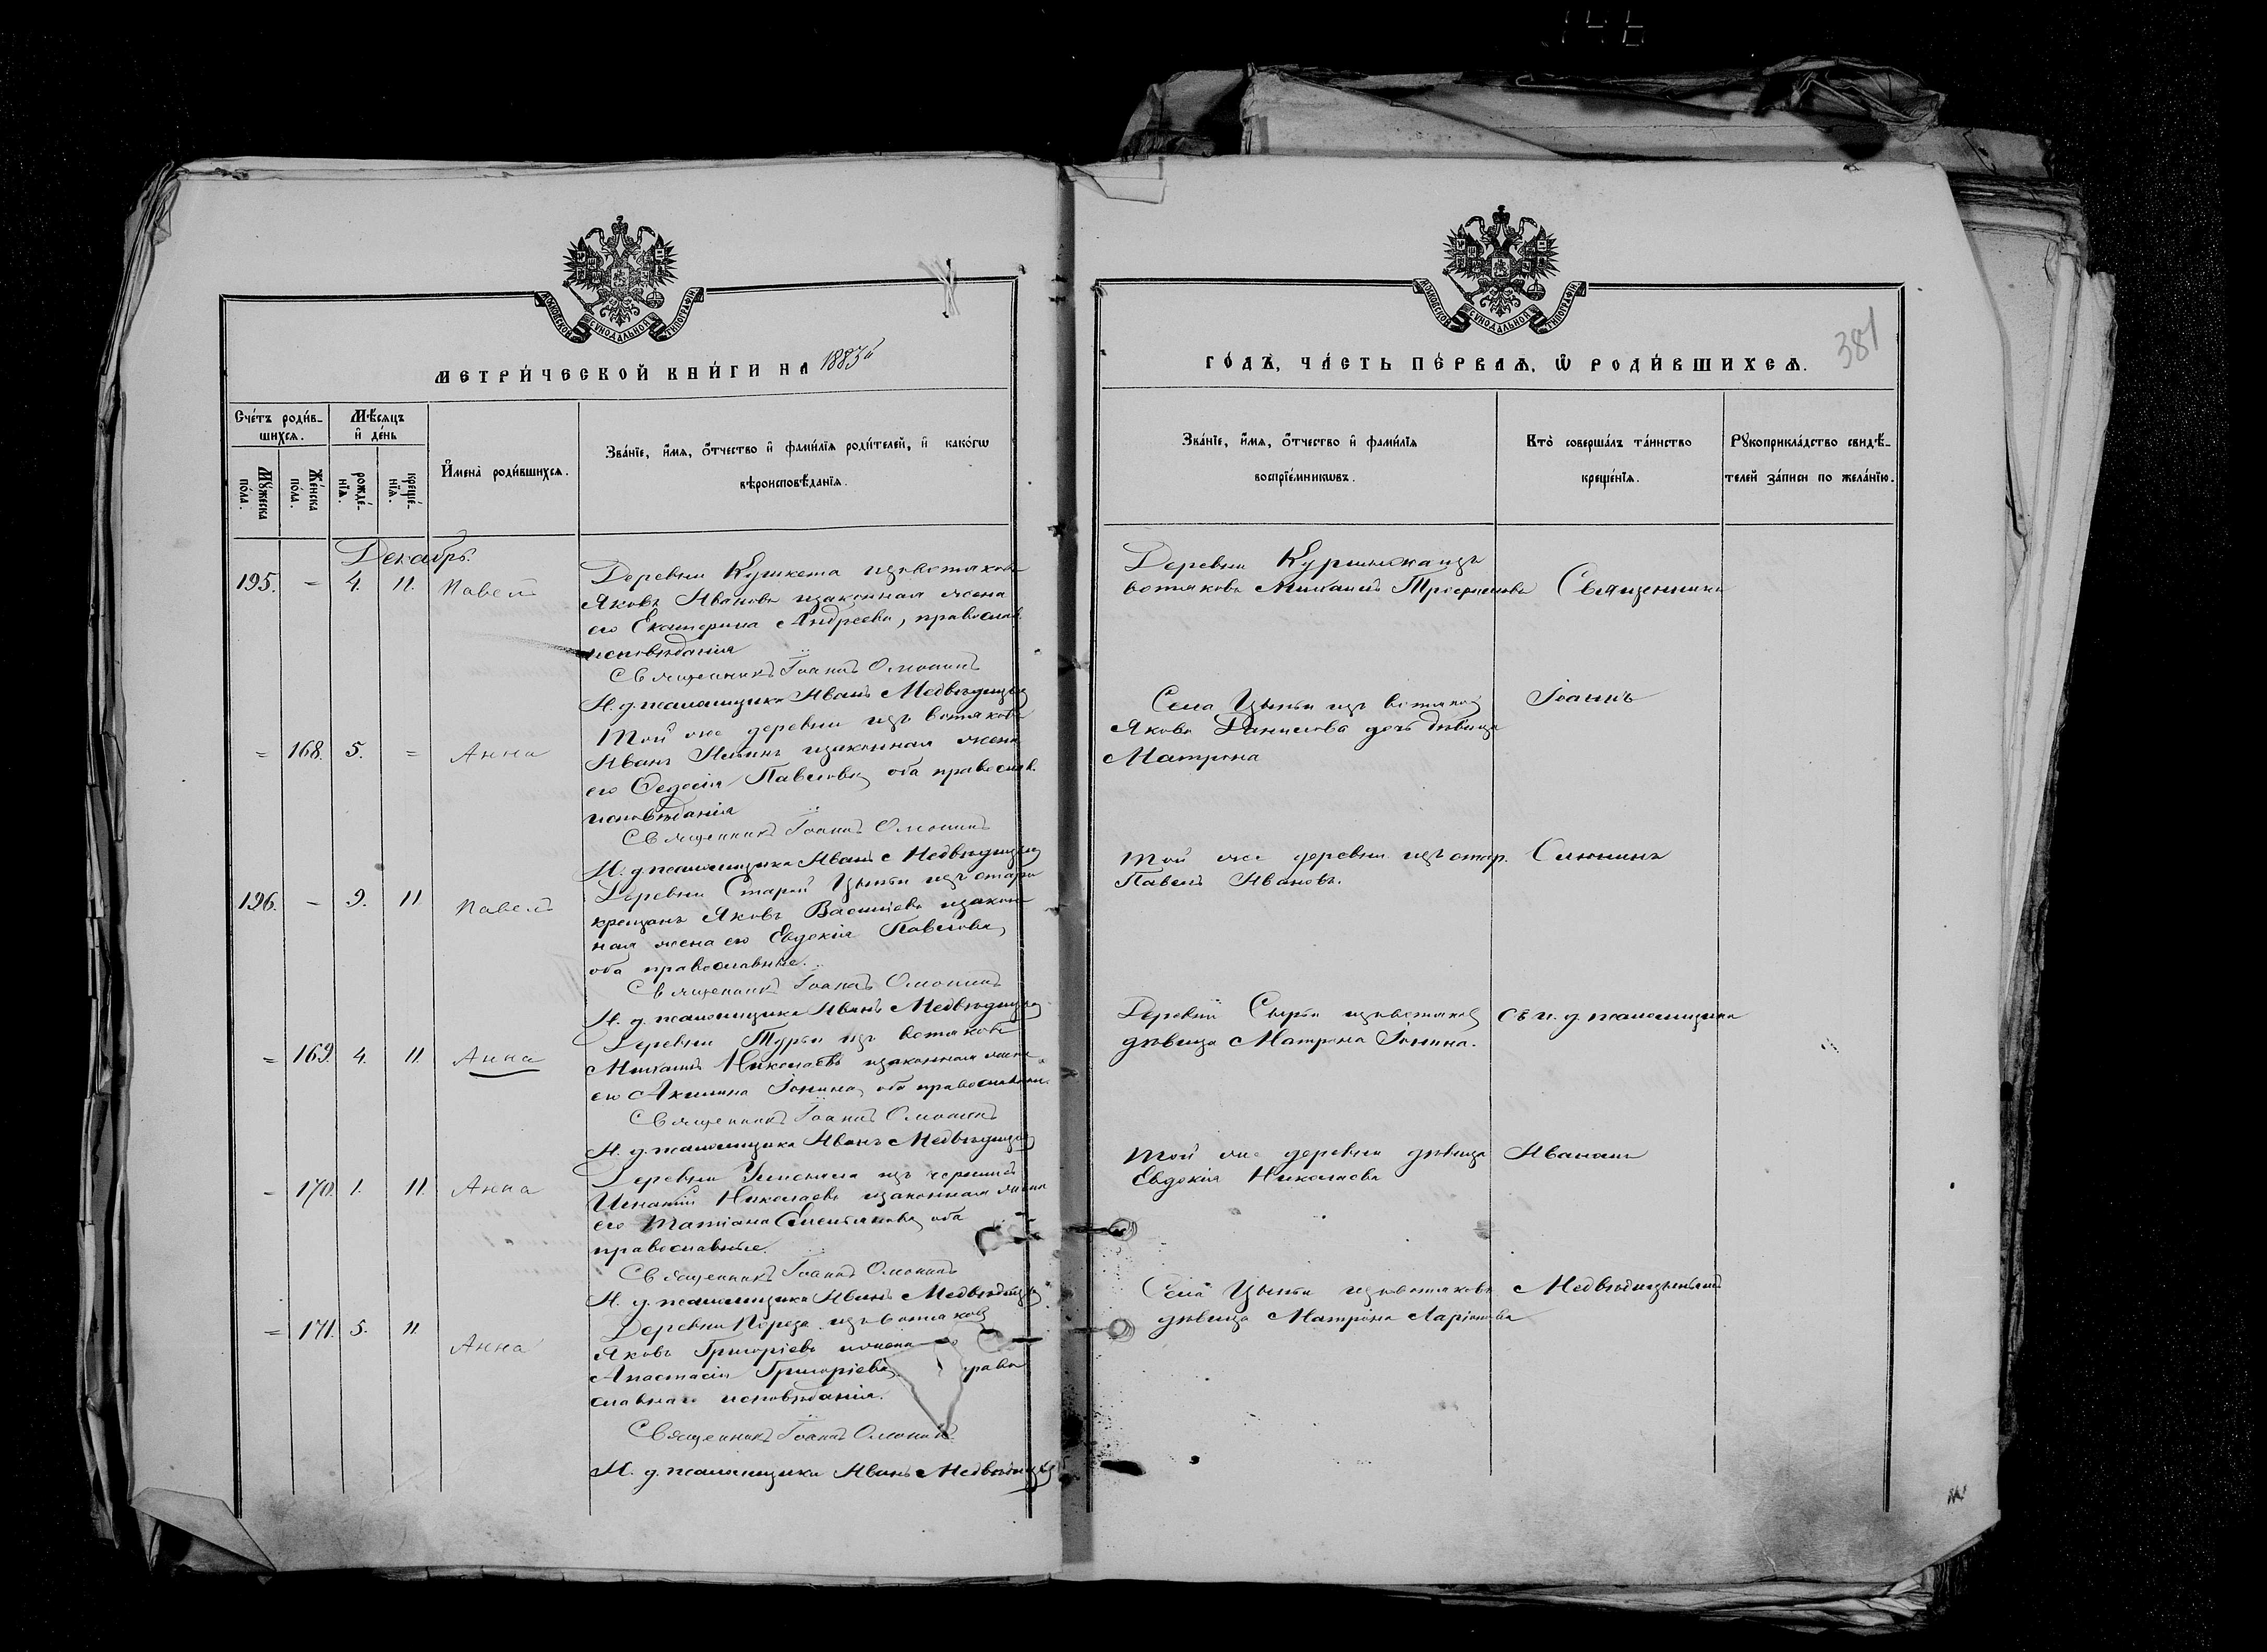 381
МЕТРИ́ЧЕСКОЙ КНИ́ГИ НА 1883й
ГО́ДЪ, ЧА́СТЬ ПЕ́РВАѦ, Ѿ РОДИ́ВШИХСѦ.
Сче́тъ роди́в-
шихсѧ.
Мѣ́сѧцъ
и҆ де́нь
Мꙋ́жеска по́ла.
Же́нска по́ла.
рожде́-нїѧ.
креще́-нїѧ.
И҆мена̀ роди́вшихсѧ.
Зва́нїе, и҆́мѧ, ѻ҆́тчество и҆ фами́лїѧ роди́телей, и҆ како́гѡ
вѣроисповѣ́данїѧ.
Зва́нїе, и҆́мѧ, ѻ҆́тчество и҆ фами́лїѧ
воспрїе́мникѡвъ.
Кто̀ соверша́лъ та́инство
креще́нїѧ.
Рꙋкоприкла́дство свидѣ́-
телей за́писи по жела́нїю.
Декабрь.
195. – 4. 11. Павелъ
Деревни Кушкета изъ вотяковъ
Яковъ Ивановъ и законная жена
его Екатерина Андреева, православ.
исповѣданія
Священникъ Іоаннъ
И. д. псаломщика Иванъ Медвѣдицынъ
Деревни
вотяковъ Михаилъ Трофимовъ
Священникъ
= 168. 5. = Анна
Той же деревни изъ вотяковъ
Иванъ Ильинъ и законная жена
его Ѳедосія Павлова, оба православ.
исповѣданія
Священникъ Іоаннъ
И. д. псаломщика Иванъ Медвѣдицынъ
Села Цыпьи изъ вотяковъ
Якова Данилова дочь дѣвица
Матрона
Іоаннъ
196. – 9. 11. Павелъ
Деревни Старой Цыпьи изъ старо
крещенъ Яковъ Васильевъ и закон
ная жена его Евдокія Павлова,
оба православные.
Священникъ Іоаннъ
И. д. псаломщика Иванъ Медвѣдицынъ
Той же деревни изъ стар.
Павелъ Ивановъ.
= 169. 4. 11. Анна
Деревни Турьи изъ вотяковъ
Михаилъ Николаевъ и законная жена
его Акилина Іонина, оба православн.
Священникъ Іоаннъ
И. д. псаломщика Иванъ Медвѣдицынъ
Деревни Сырьи изъ вотяковъ
дѣвица Матрона Іонина.
Съ и. д. псаломщика
= 170. 1. 11. Анна
Деревни изъ
Игнатій Николаевъ и законная жена
его Татіана Емельянова, оба
православные.
Священникъ Іоаннъ
И. д. псаломщика Иванъ Медвѣдицынъ
Той же деревни дѣвица
Евдокія Николаева
Иваномъ
= 171. 5. 11. Анна
Деревни изъ вотяковъ
Яковъ Григорьевъ и жена
Анастасія Григорьева, право
славнаго исповѣданія.
Священникъ Іоаннъ
И. д. псаломщика Иванъ Медвѣдицынъ
Села Цыпьи изъ вотяковъ
дѣвица Матрона Ларіонова
Медвѣдицынымъ